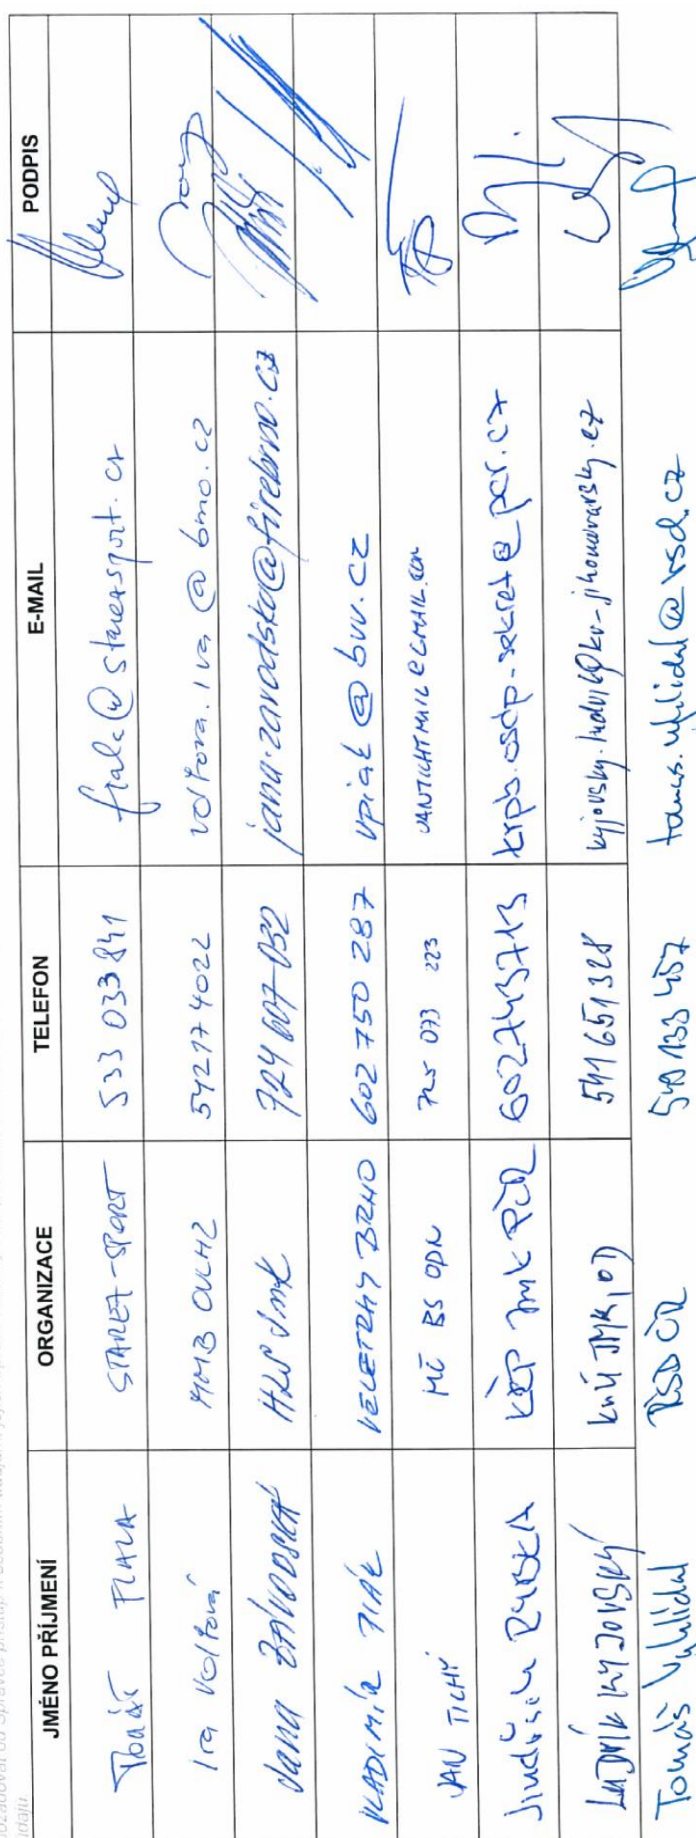 údajů.
JMÉNO PŘÍJMENÍ ORGANIZACE TELEFON E-MAIL PODPIS
Tomáš FIALA STAREZ-SPORT 533 033 841 fiala@starezsport.cz
Iva Voltrová MMB OVLHZ 542174022 @brno.cz
Jana ZÁVODSKÁ HZS JmK 724 607 032 jana.zavodska@firebrno.cz
VLADIMÍR PIÁK VELETRHY BRNO 602 750 287 vpiak@bvv.cz
JAN TICHÝ MČ BS ODN 725 073 223 JANTICHYMAIL@GMAIL.COM
Jindřich KŘP JmK PČR 602743713 @pcr.cz
LUDVÍK KYJOVSKÝ KrÚ JMK, OD 541651328 kyjovsky.ludvik@kr-jihomoravsky.cz
Tomáš Vyhlídal ŘSD ČR 549 133 457 tomas.vyhlidal@rsd.cz